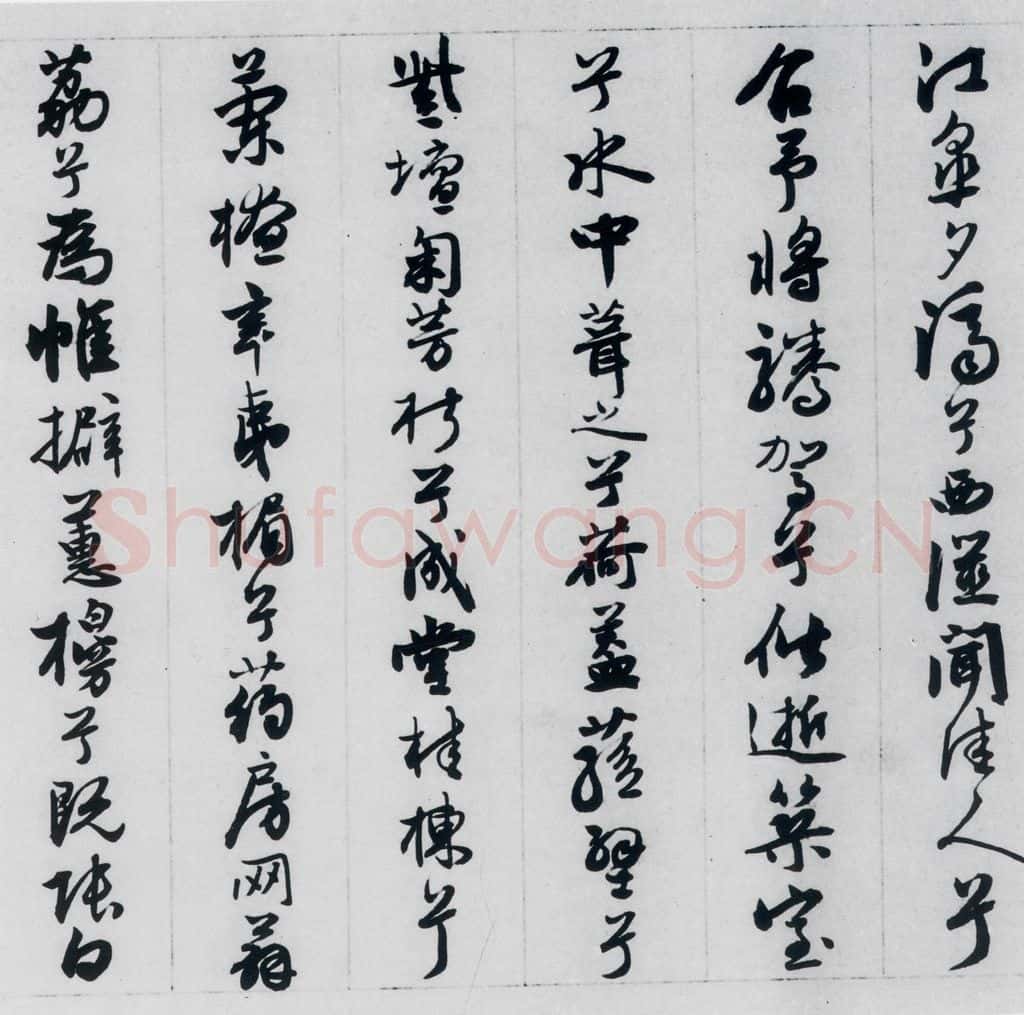 江皋夕濟兮西澨聞佳人兮
召予將騰駕兮偕逝築室
兮水中葺之兮荷蓋蓀壁兮
紫壇匊芳椒兮成堂桂棟兮
蘭橑辛夷楣兮葯房网薜
荔兮為帷擗蕙櫋兮既張白
Shufawang.CN